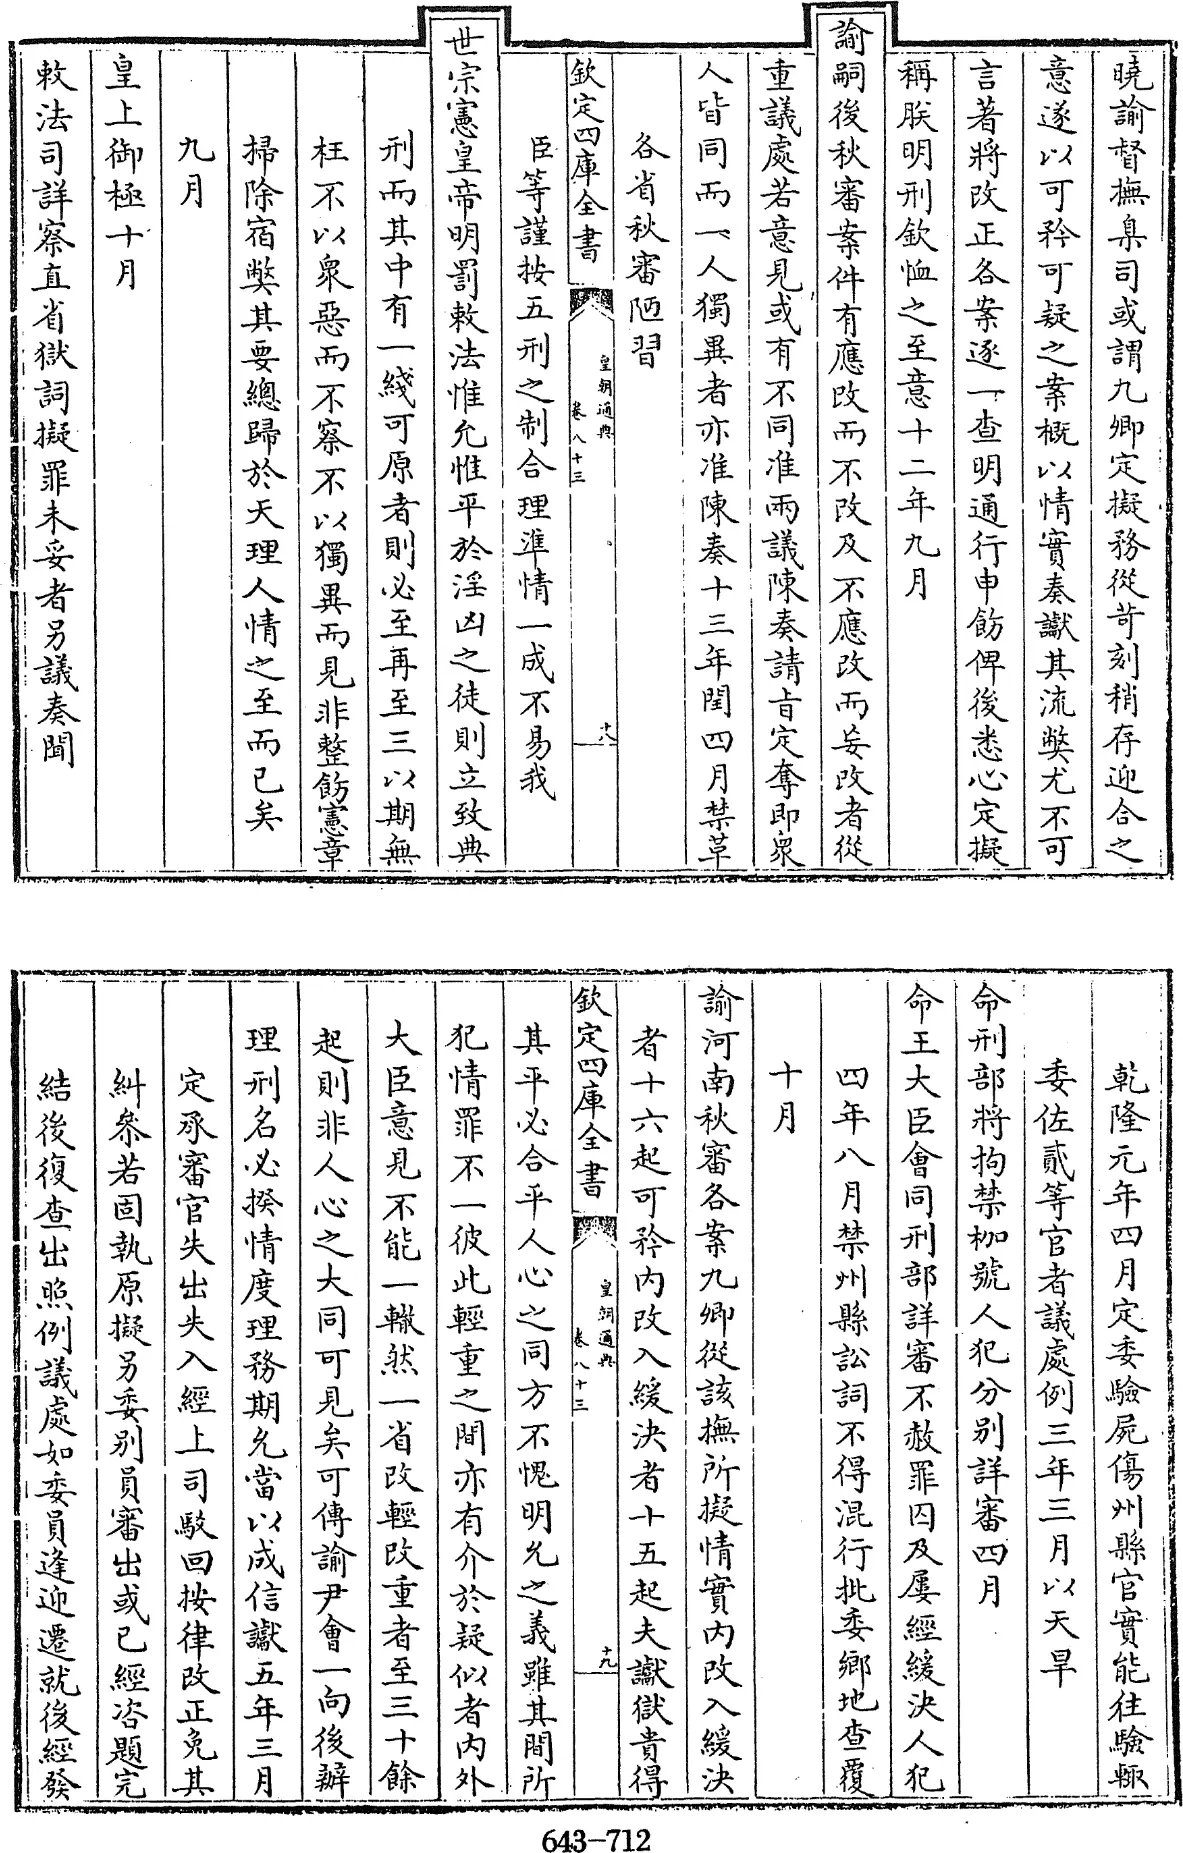 曉諭督撫臬司或謂九卿定擬務從苛刻稍存迎合之
意遂以可矜可疑之案概以情實奏讞其流弊尤不可
言著將改正各案逐一查明通行申飭俾後悉心定擬
稱朕明刑欽恤之至意十二年九月
諭嗣後秋審案件有應改而不改及不應改而妄改者從
重議處若意見或有不同准兩議陳奏請旨定奪即衆
人皆同而一人獨異者亦准陳奏十三年閏四月禁革
各省秋審陋習
欽定四庫全書
皇朝通典
卷八十三
十八
臣等謹按五刑之制合理準情一成不易我
世宗憲皇帝明罰敕法惟允惟平於淫凶之徒則立致典
刑而其中有一綫可原者則必至再至三以期無
枉不以衆惡而不察不以獨異而見非整飭憲章
掃除宿弊其要總歸於天理人情之至而已矣
九月
皇上御極十月
敕法司詳察直省獄詞擬罪未妥者另議奏聞
乾隆元年四月定委驗屍傷州縣官實能往驗輒
委佐貳等官者議處例三年三月以天旱
命刑部將拘禁枷號人犯分別詳審四月
命王大臣會同刑部詳審不赦罪囚及屢經緩決人犯
四年八月禁州縣訟詞不得混行批委鄉地查覆
十月
諭河南秋審各案九卿從該撫所擬情實內改入緩決
者十六起可矜內改入緩決者十五起夫讞獄貴得
欽定四庫全書
皇朝通典
卷八十三
十九
其平必合乎人心之同方不愧明允之義雖其間所
犯情罪不一彼此輕重之間亦有介於疑似者內外
大臣意見不能一轍然一省改輕改重者至三十餘
起則非人心之大同可見矣可傳諭尹會一向後辦
理刑名必揆情度理務期允當以成信讞五年三月
定承審官失出失入經上司駁回按律改正免其
糾叅若固執原擬另委別員審出或已經咨題完
結後復查出照例議處如委員逢迎遷就後經發
643-712